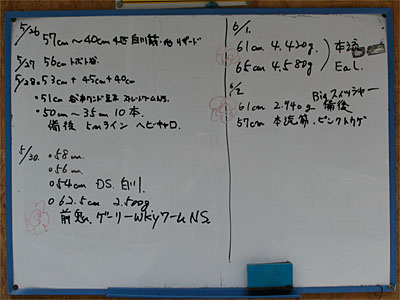 5/26 57cm～40cm 4匹 白川筋
5/27 56cm トボト谷
5/28 ・53cm + 45cm + 40cm
・51cm
・50cm～35cm 10本
備後 5mライン ヘビキャロ
5/30. ・58cm
・56cm
・54cm DS. 白川.
・62.5cm 2.500g
前鬼. ゲーリーWKYワームNS.
6/1.
61cm 4.420g 本流
65cm 4.580g EaL.
6/2 Bigスイッシャー
61cm 2.940g 備後
57cm 本流筋. ピンクトカゲ